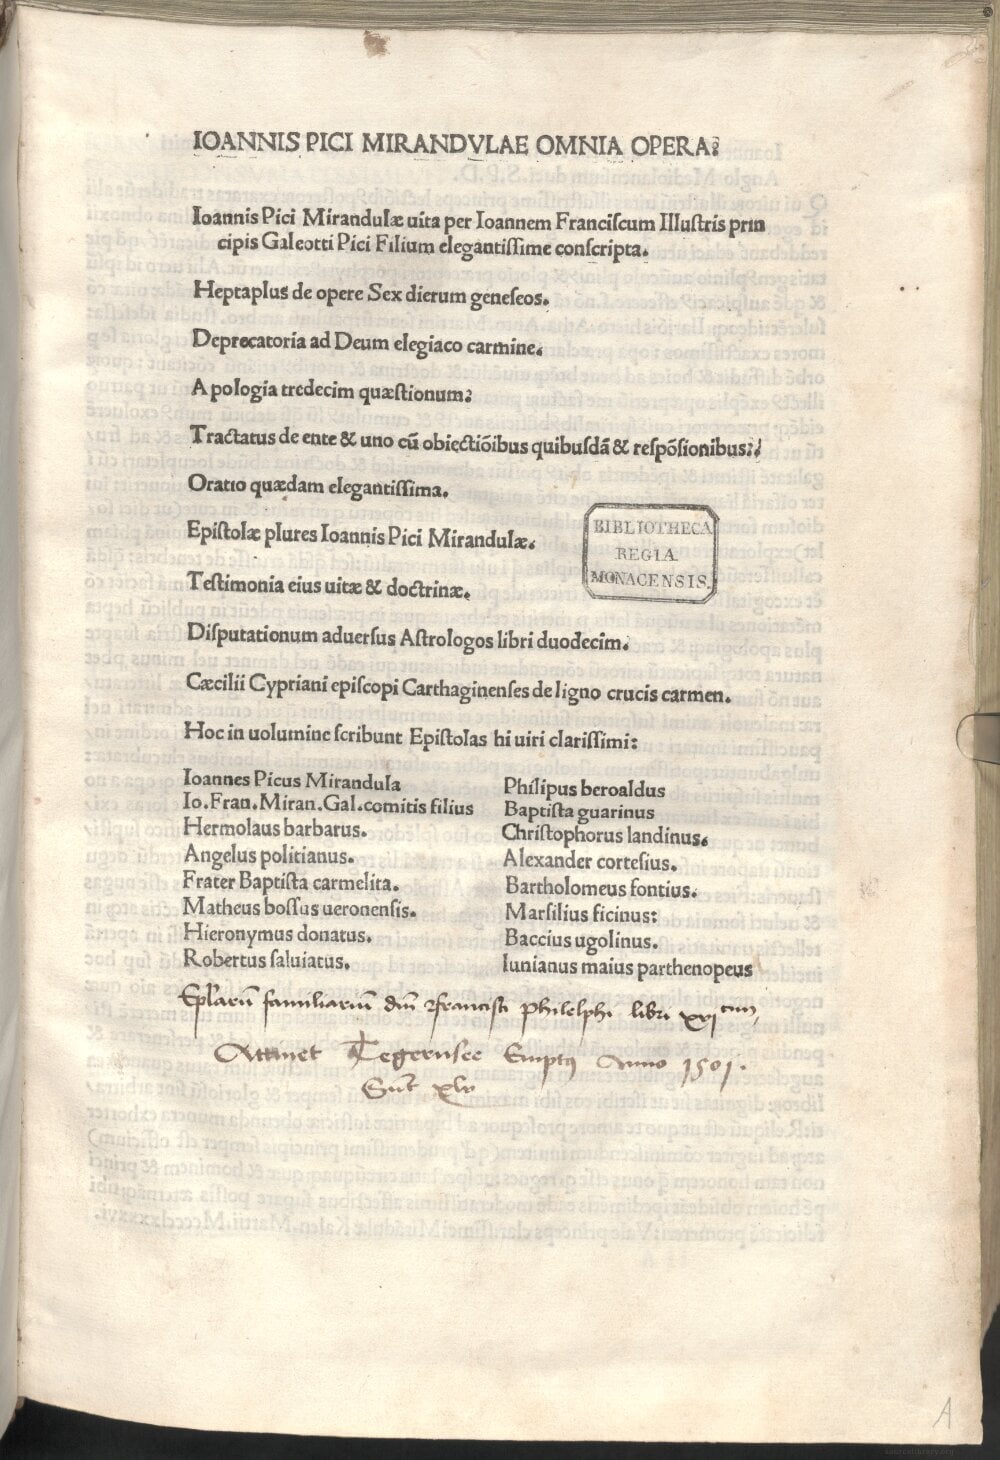 IOANNIS PICI MIRANDVLAE OMNIA OPERA:
Ioannis Pici Mirandulæ uita per Ioannem Franciſcum Illuſtris prin
cipis Galeotti Pici Filium elegantiſſime conſcripta.
Heptaplus de opere Sex dierum geneſeos.
Deprecatoria ad Deum elegiaco carmine.
Apologia tredecim quæſtionum:
Tractatus de ente & uno cū obiectiōibus quibuſdā & reſpōſionibus:
Oratio quædam elegantiſſima.
Epiſtolæ plures Ioannis Pici Mirandulæ.
Teſtimonia eius uitæ & doctrinæ.
Diſputationum aduerſus Aſtrologos libri duodecim.
Cæcilii Cypriani epiſcopi Carthaginenſes de ligno crucis carmen.
Hoc in uolumine ſcribunt Epiſtolas hi uiri clariſſimi:
Ioannes Picus Mirandula
Io.Fran.Miran.Gal.comitis filius
Hermolaus barbarus.
Angelus politianus.
Frater Baptiſta carmelita.
Matheus boſſus ueronenſis.
Hieronymus donatus.
Robertus ſaluiatus.
Philipus beroaldus
Baptiſta guarinus
Chriſtophorus landinus.
Alexander corteſius.
Bartholomeus fontius.
Marſilius ficinus:
Baccius ugolinus.
Iunianus maius parthenopeus
BIBLIOTHECA
REGIA
MONACENSIS.
Ep̄larū familiariū francisci Philelphi libri xvi
Attinet Tegernsee Emptus Anno 1501.
A